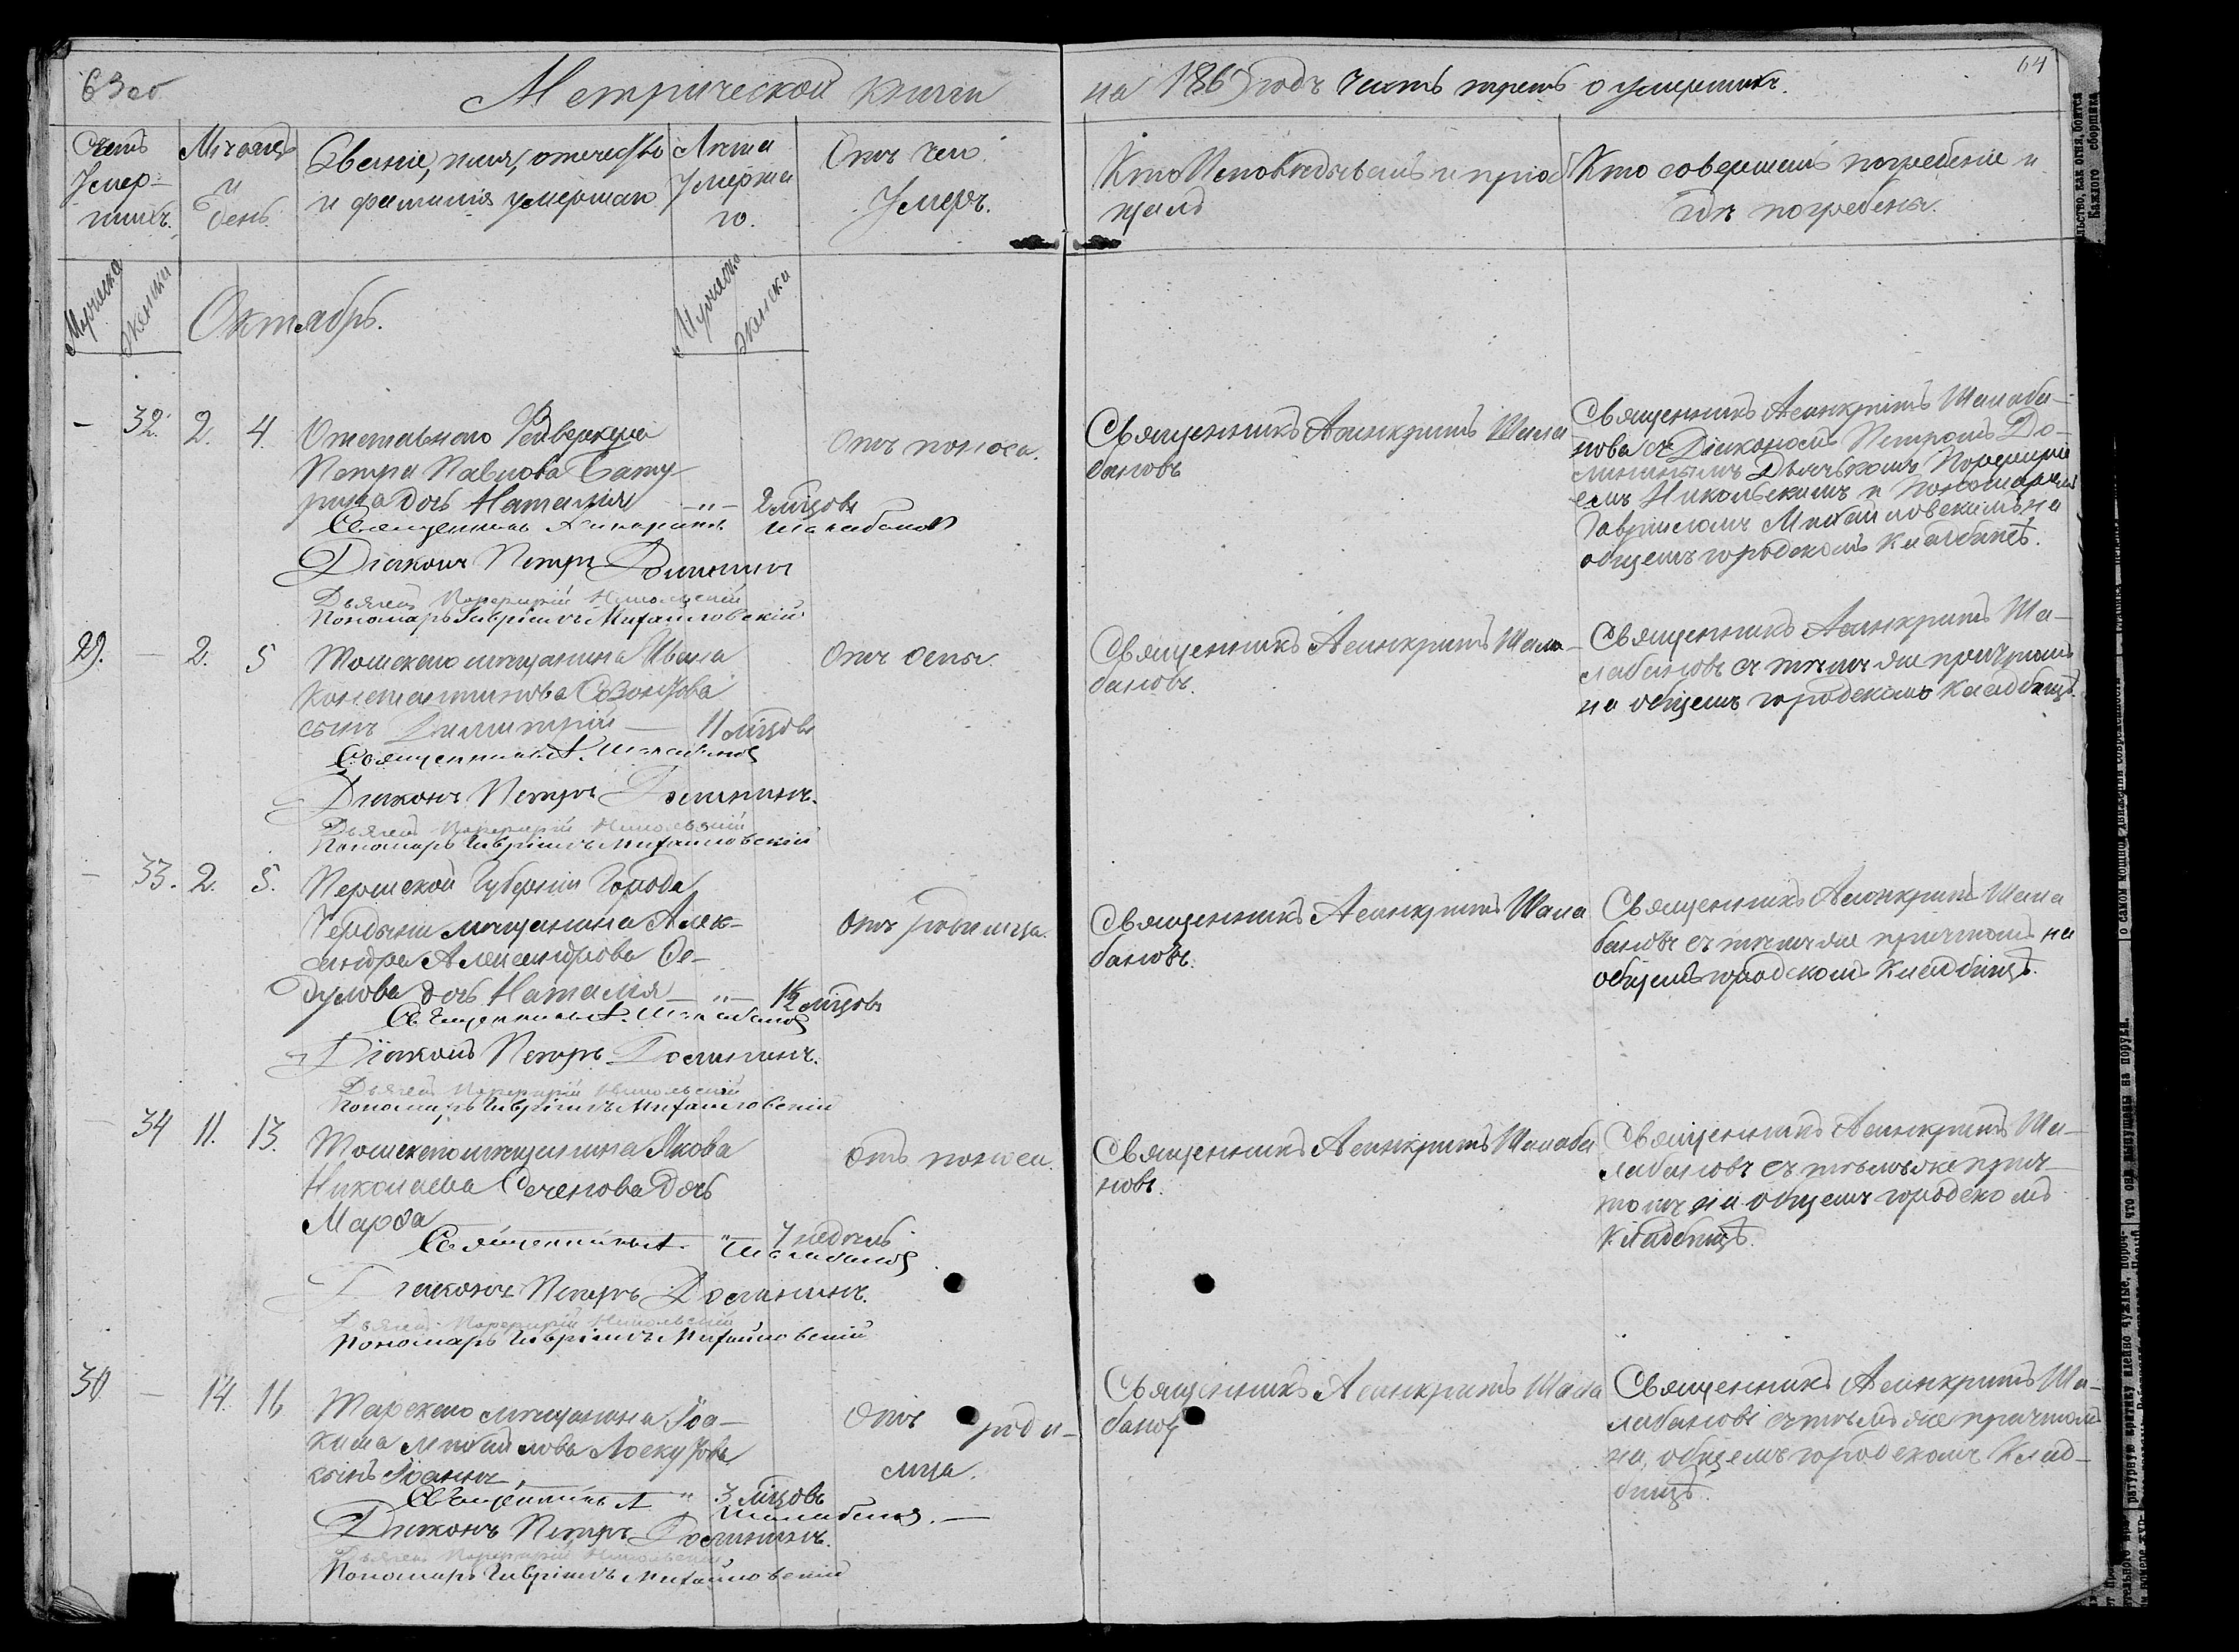 63об
Метрической книги
на 186 годъ часть третья о умершихъ.
64
Счетъ Умер-шихъ.
Мѣсяцъ и день.
Званіе, имя, отчество и фамилія умершаго
Лѣта Умерша го.
Отъ чего Умеръ.
Кто Исповѣдывалъ и пріоб щалъ
Кто совершалъ погребеніе и гдѣ погребены.
Мужеска
Женска
Октябрь.
Мужеска
Женска
- 32. 2. 4.
Отставного
Петра Павлова Бату-
рина дочь Наталия -"- 2 мѣсцовъ
Священникъ Асинкритъ Шалабановъ
Діаконъ Петръ Доминин
Дьячекъ Порфирій Никольскій
Пономарь Гавріилъ Михайловскій
отъ поноса.
Священникъ Асинкритъ Шала
бановъ
Священникъ Асинкритъ Шалаба-
новъ съ Діакономъ Петромъ До-
Дьячькомъ Порфирі
емъ Никольскимъ и Пономаремъ
Гавріиломъ Михайловскимъ на
общемъ городскомъ кладбищѣ.
29. - 2. 5
Томскаго мѣщанина Ивана
Константинова Созонтова
сынъ Димитрій — 11 мѣсцовъ
Священникъ А. Шалабановъ
Діаконъ Петръ
Дьячекъ Порфирій Никольскій
Пономарь Гавріилъ Михайловскій
отъ оспы.
Священникъ Асинкритъ Шала-
бановъ.
Священникъ Асинкритъ Ша-
лабановъ съ тѣмъ же причтомъ
на общемъ городскомъ кладбищѣ.
- 33. 2. 5.
Пермской Губерніи Города
Чердыни мѣщанина Алек-
сандра Александрова Фе-
дулова дочь Наталия -"- 1½ мѣсцовъ
Священникъ А. Шалабановъ
Діаконъ Петръ
Дьячекъ Порфирій Никольскій
Пономарь Гавріилъ Михайловскій
отъ родимца.
Священникъ Асинкритъ Шала
бановъ.
Священникъ Асинкритъ Шала
бановъ съ тѣмъ же причтомъ на
общемъ городскомъ кладбищѣ.
- 34 11. 13.
Томскаго мѣщанина Якова
Николаева дочь
Марѳа — " — 7 недѣль
Священникъ А. Шалабановъ
Діаконъ Петръ
Дьячекъ Порфирій Никольскій
Пономарь Гавріилъ Михайловскій
отъ поноса.
Священникъ Асинкритъ Шалаба
новъ.
Священникъ Асинкритъ Ша-
лабановъ съ тѣмъ же прич-
томъ на общемъ городскомъ
кладбищѣ.
30 - 14. 16
Тарскаго мѣщанина Іоа-
кима Михайлова Лоскутова
сынъ Іоаннъ — " 3 мѣсцовъ
Священникъ А Шалабановъ. —
Діаконъ Петръ
Дьячекъ Порфирій Никольскій
Пономарь Гавріилъ Михайловскій
Отъ роди-
мца.
Священникъ Асинкритъ Шала
бановъ
Священникъ Асинкритъ Ша-
лабановъ съ тѣмъ же причтомъ
на общемъ городскомъ клад-
бищѣ.